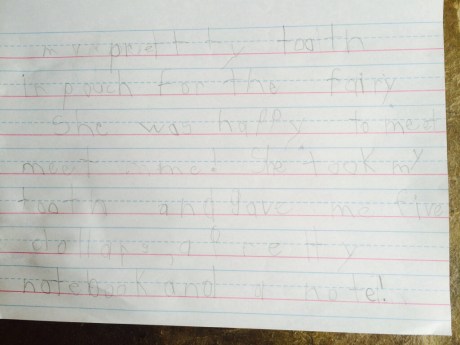 my prettty tooth
in pouch for the fairy
She was happy to meet
meet me! She took my
tooth and gave me five
dollars, a pretty
notebook and a note!